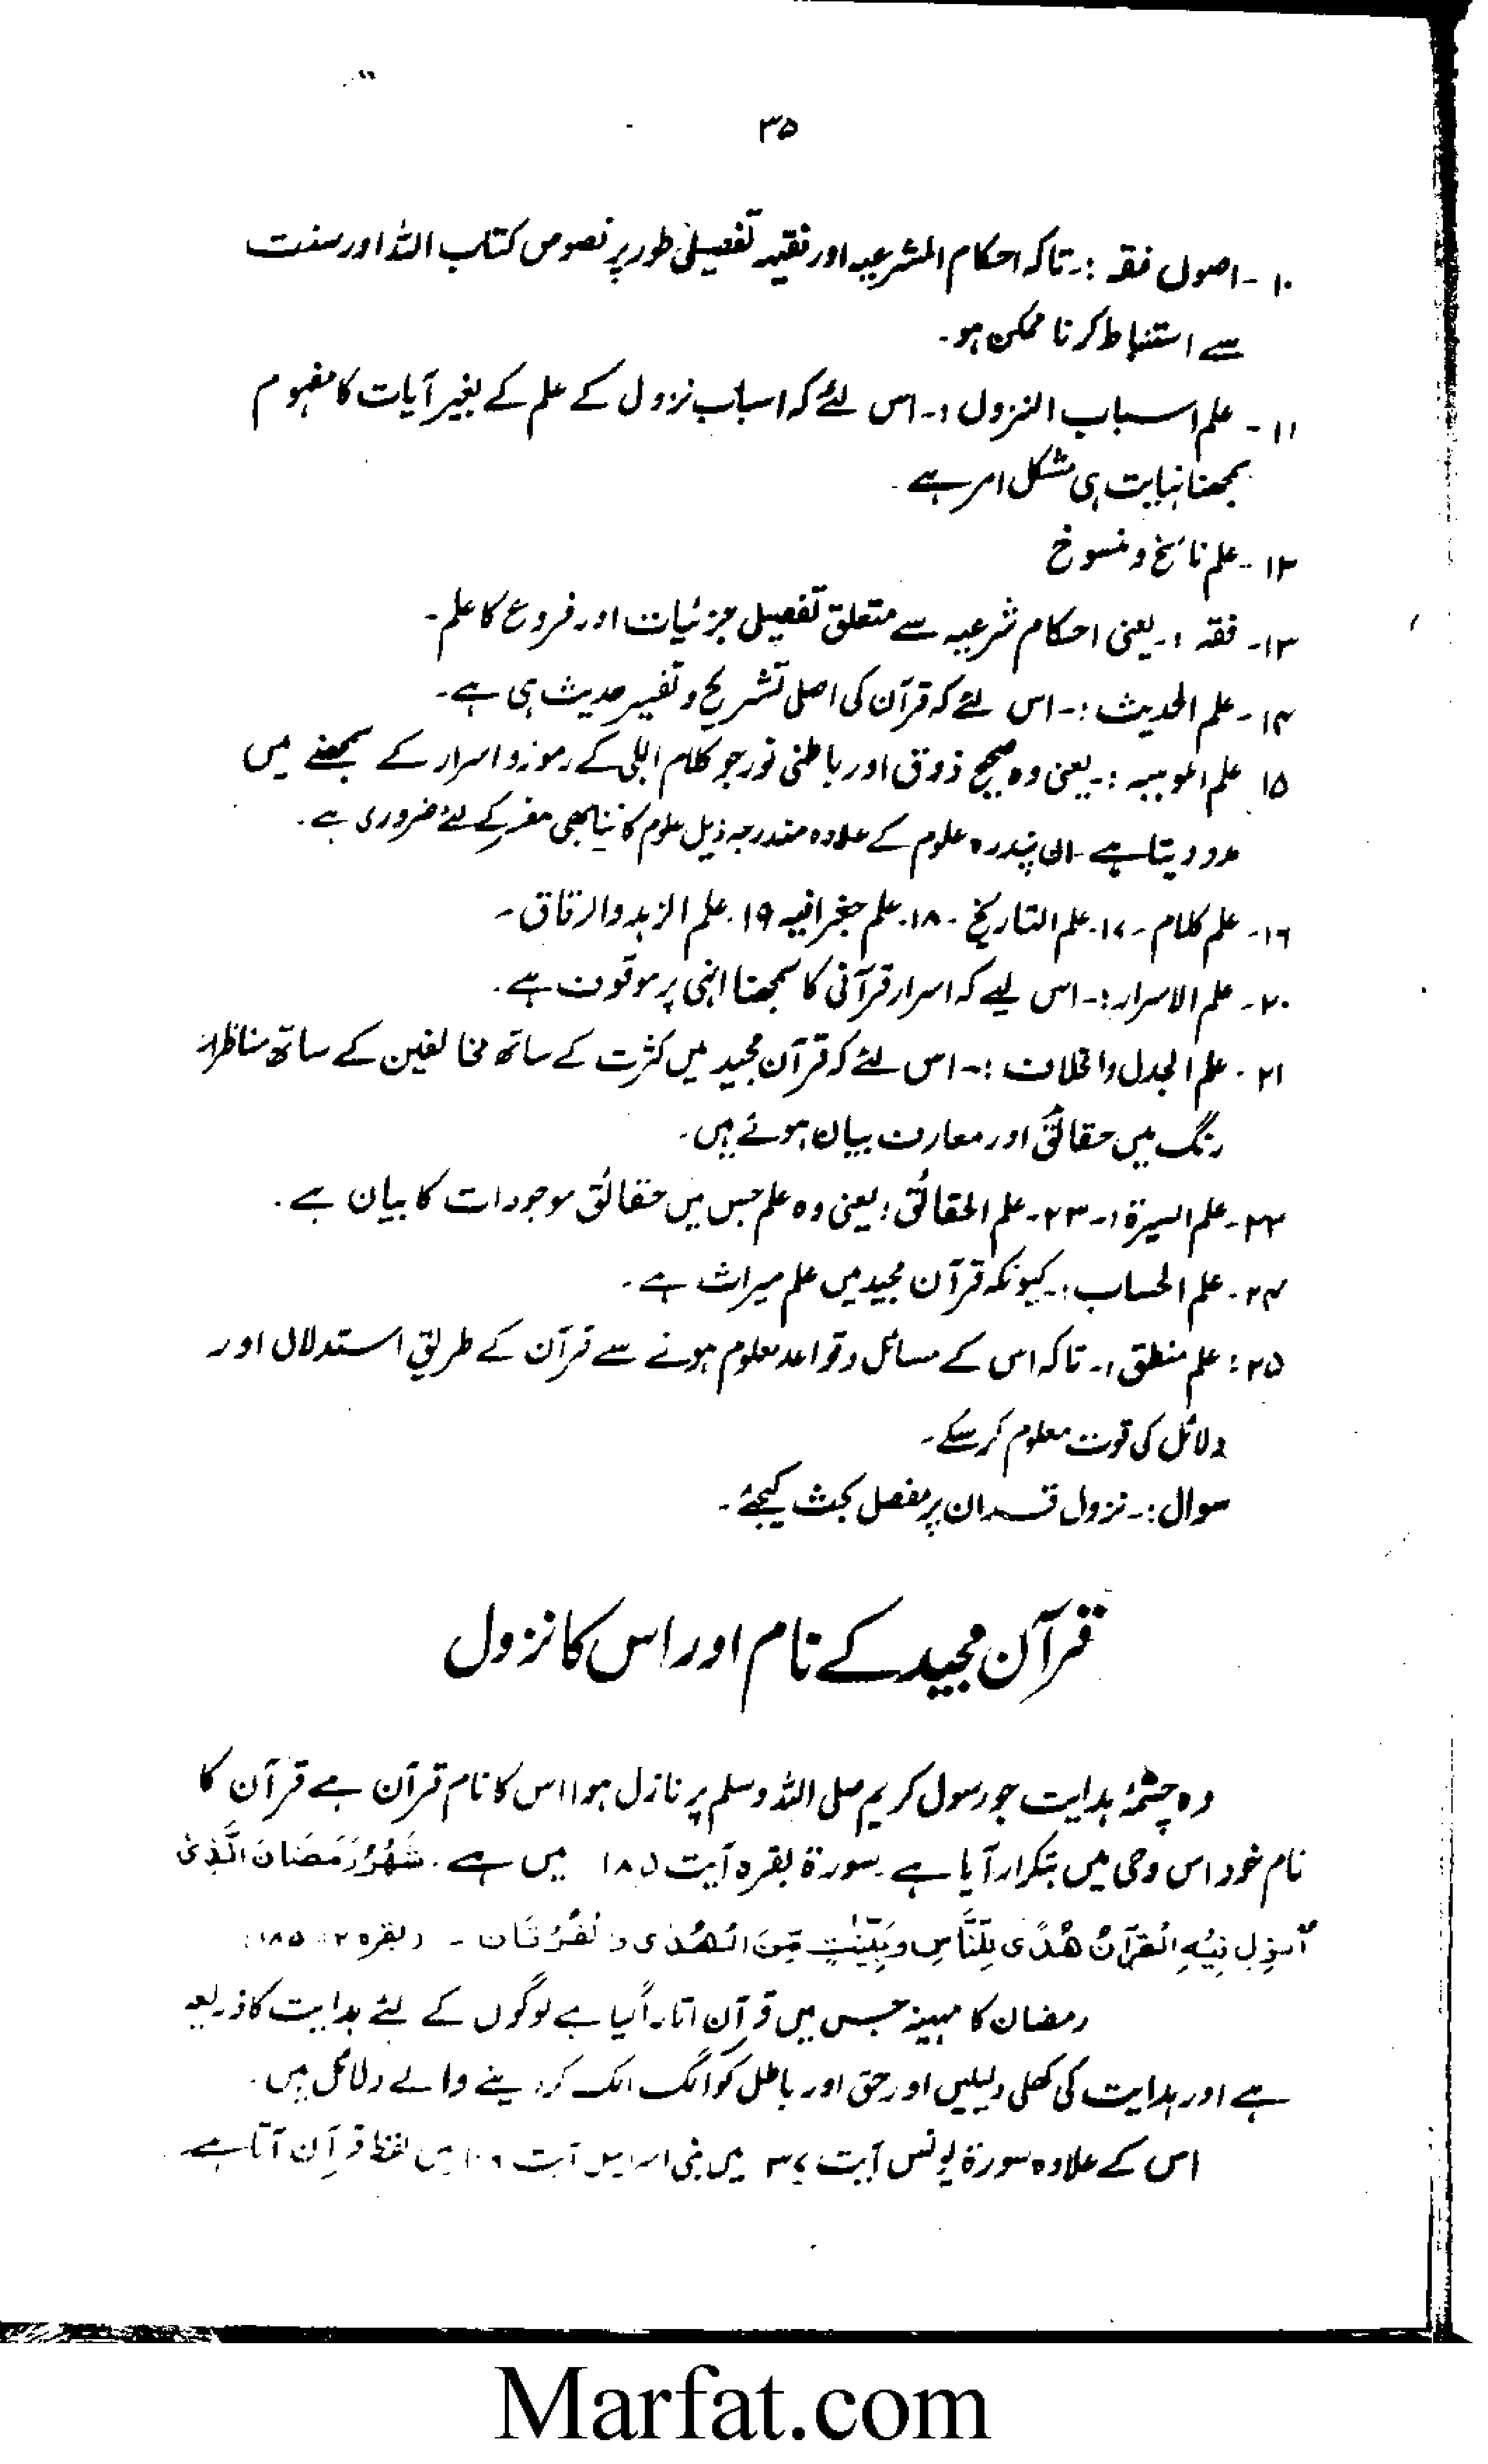 ۳۵
۱۰ - اصول فقہ :۔ تاکہ احکام الشرعیہ اور فقیہ تفصیلی طور پر نصوص کتاب اللہ اور سنت
سے استنباط کرنا ممکن ہو۔
۱۱ - علم اسباب النزول :۔ اس لئے کہ اسباب نزول کے علم کے بغیر آیات کا مفہوم
سمجھنا نہایت ہی مشکل امر ہے۔
۱۲ - علم ناسخ و منسوخ
۱۳ - فقہ :۔ یعنی احکام شرعیہ سے متعلق تفصیلی جزئیات اور فروع کا علم۔
۱۴ - علم الحدیث :۔ اس لئے کہ قرآن کی اصلی تشریح و تفسیر حدیث ہی ہے۔
۱۵ علم الموہبہ :۔ یعنی وہ صحیح ذوق اور باطنی نور جو کلام الہی کے رموز و اسرار کے سمجھنے میں
مدد دیتا ہے۔ ان پندرہ علوم کے علاوہ مندرجہ ذیل علوم کا بھی مفسر کے لئے ضروری ہے۔
۱۶ - علم کلام ۔ ۱۷۔ علم التاریخ ۔ ۱۸۔ علم جغرافیہ ۱۹۔ علم الزہد والرقاق ۔
۲۰ ۔ علم الاسرار :۔ اس لیے کہ اسرار قرآنی کا سمجھنا انہی پر موقوف ہے۔
۲۱ ۔ علم الجدل والخلاف :۔ اس لئے کہ قرآن مجید میں کثرت کے ساتھ مخالفین کے ساتھ مناظرانہ
رنگ میں حقائق اور معارف بیان ہوئے ہیں۔
۲۲ ۔ علم السیرۃ :۔ ۲۳ ۔ علم الحقائق : یعنی وہ علم جس میں حقائق موجودات کا بیان ہے۔
۲۴ ۔ علم الحساب :۔ کیونکہ قرآن مجید میں علم میراث ہے۔
۲۵ : علم منطق :۔ تاکہ اس کے مسائل و قواعد معلوم ہونے سے قرآن کے طریق استدلال اور
دلائل کی قوت معلوم کر سکے۔
سوال :۔ نزول قرآن پر مفصل بحث کیجئے ۔
قرآن مجید کے نام اور اس کا نزول
وہ چشمۂ ہدایت جو رسول کریم صلی اللہ وسلم پر نازل ہوا اس کا نام قرآن ہے قرآن کا
نام خود اس وحی میں بتکرار آیا ہے۔ سورۃ بقرہ آیت ۱۸۵ میں ہے۔ شَهْرُ رَمَضَانَ الَّذِىْ
اُنْزِلَ فِيْهِ الْقُرْآنُ هُدًى لِّلنَّاسِ وَبَيِّنٰتٍ مِّنَ الْهُدٰى وَالْفُرْقَان ۔ (بقرہ ۲: ۱۸۵)
رمضان کا مہینہ جس میں قرآن اتارا گیا ہے لوگوں کے لئے ہدایت کا ذریعہ
ہے اور ہدایت کی کھلی دلیلیں اور حق اور باطل کو الگ الگ کر دینے والے دلائل ہیں۔
اس کے علاوہ سورۃ یونس آیت ۳۷ میں بنی اسرائیل آیت ۱۰۶ میں لفظ قرآن آتا ہے
Marfat.com